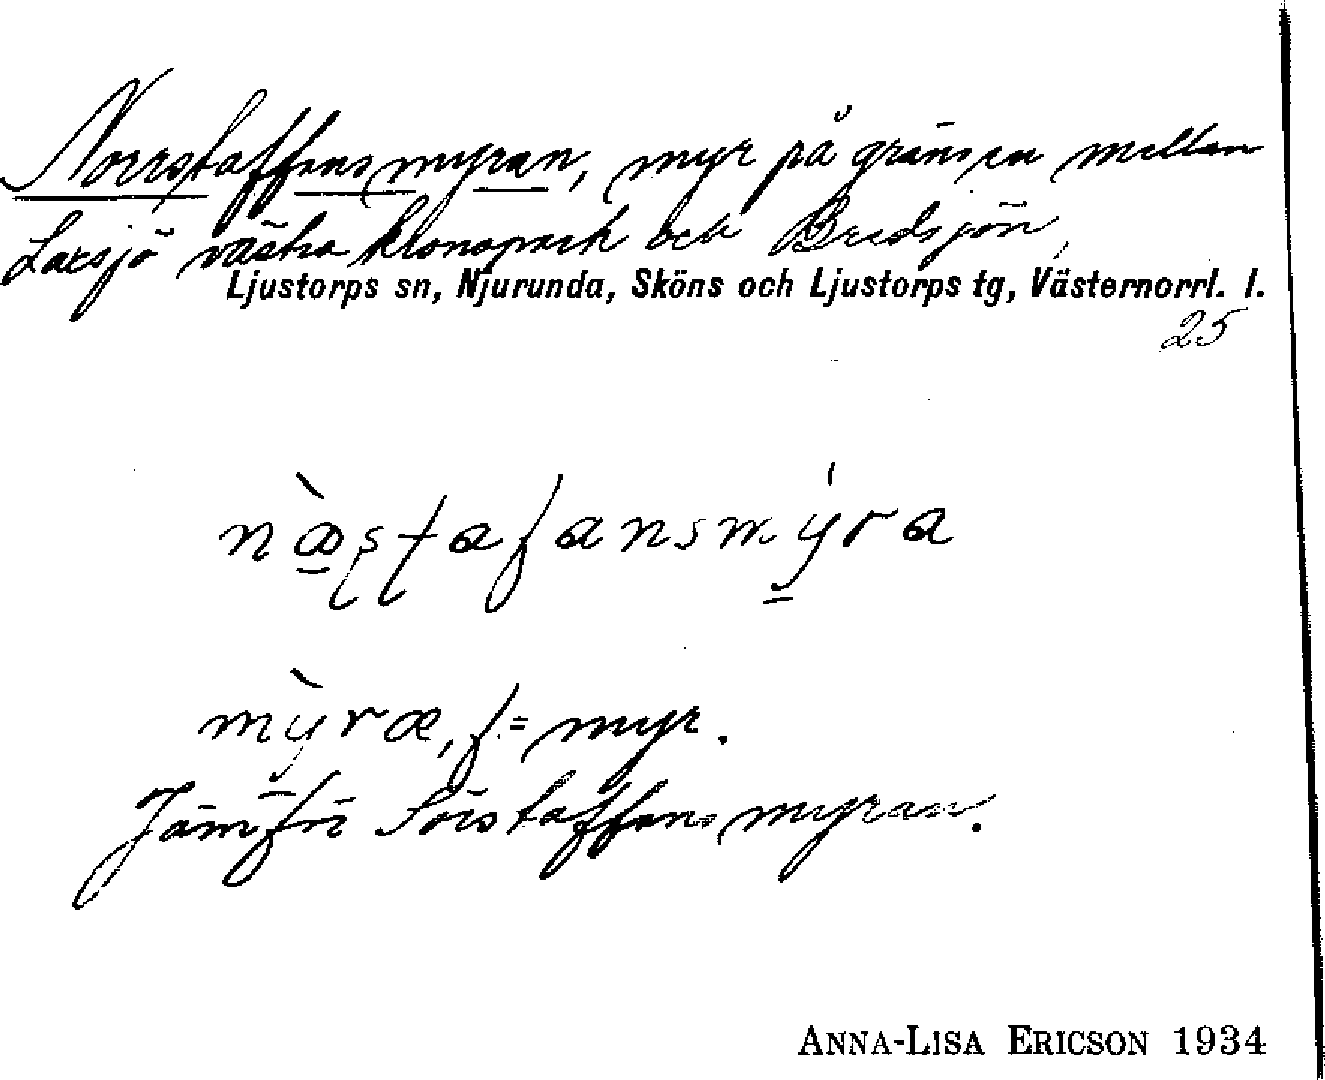 Norrstaffensmyran, myr på gränsen mellan
Laxsjö västra kronopark och Bredsjön,
Ljustorps sn, Njurunda, Sköns och Ljustorps tg, Västernorrl. l.
25
nㅤstafansmyra
myræ, f. = myr.
Jämför Sörstaffensmyran.
ANNA-LISA ERICSON 1934